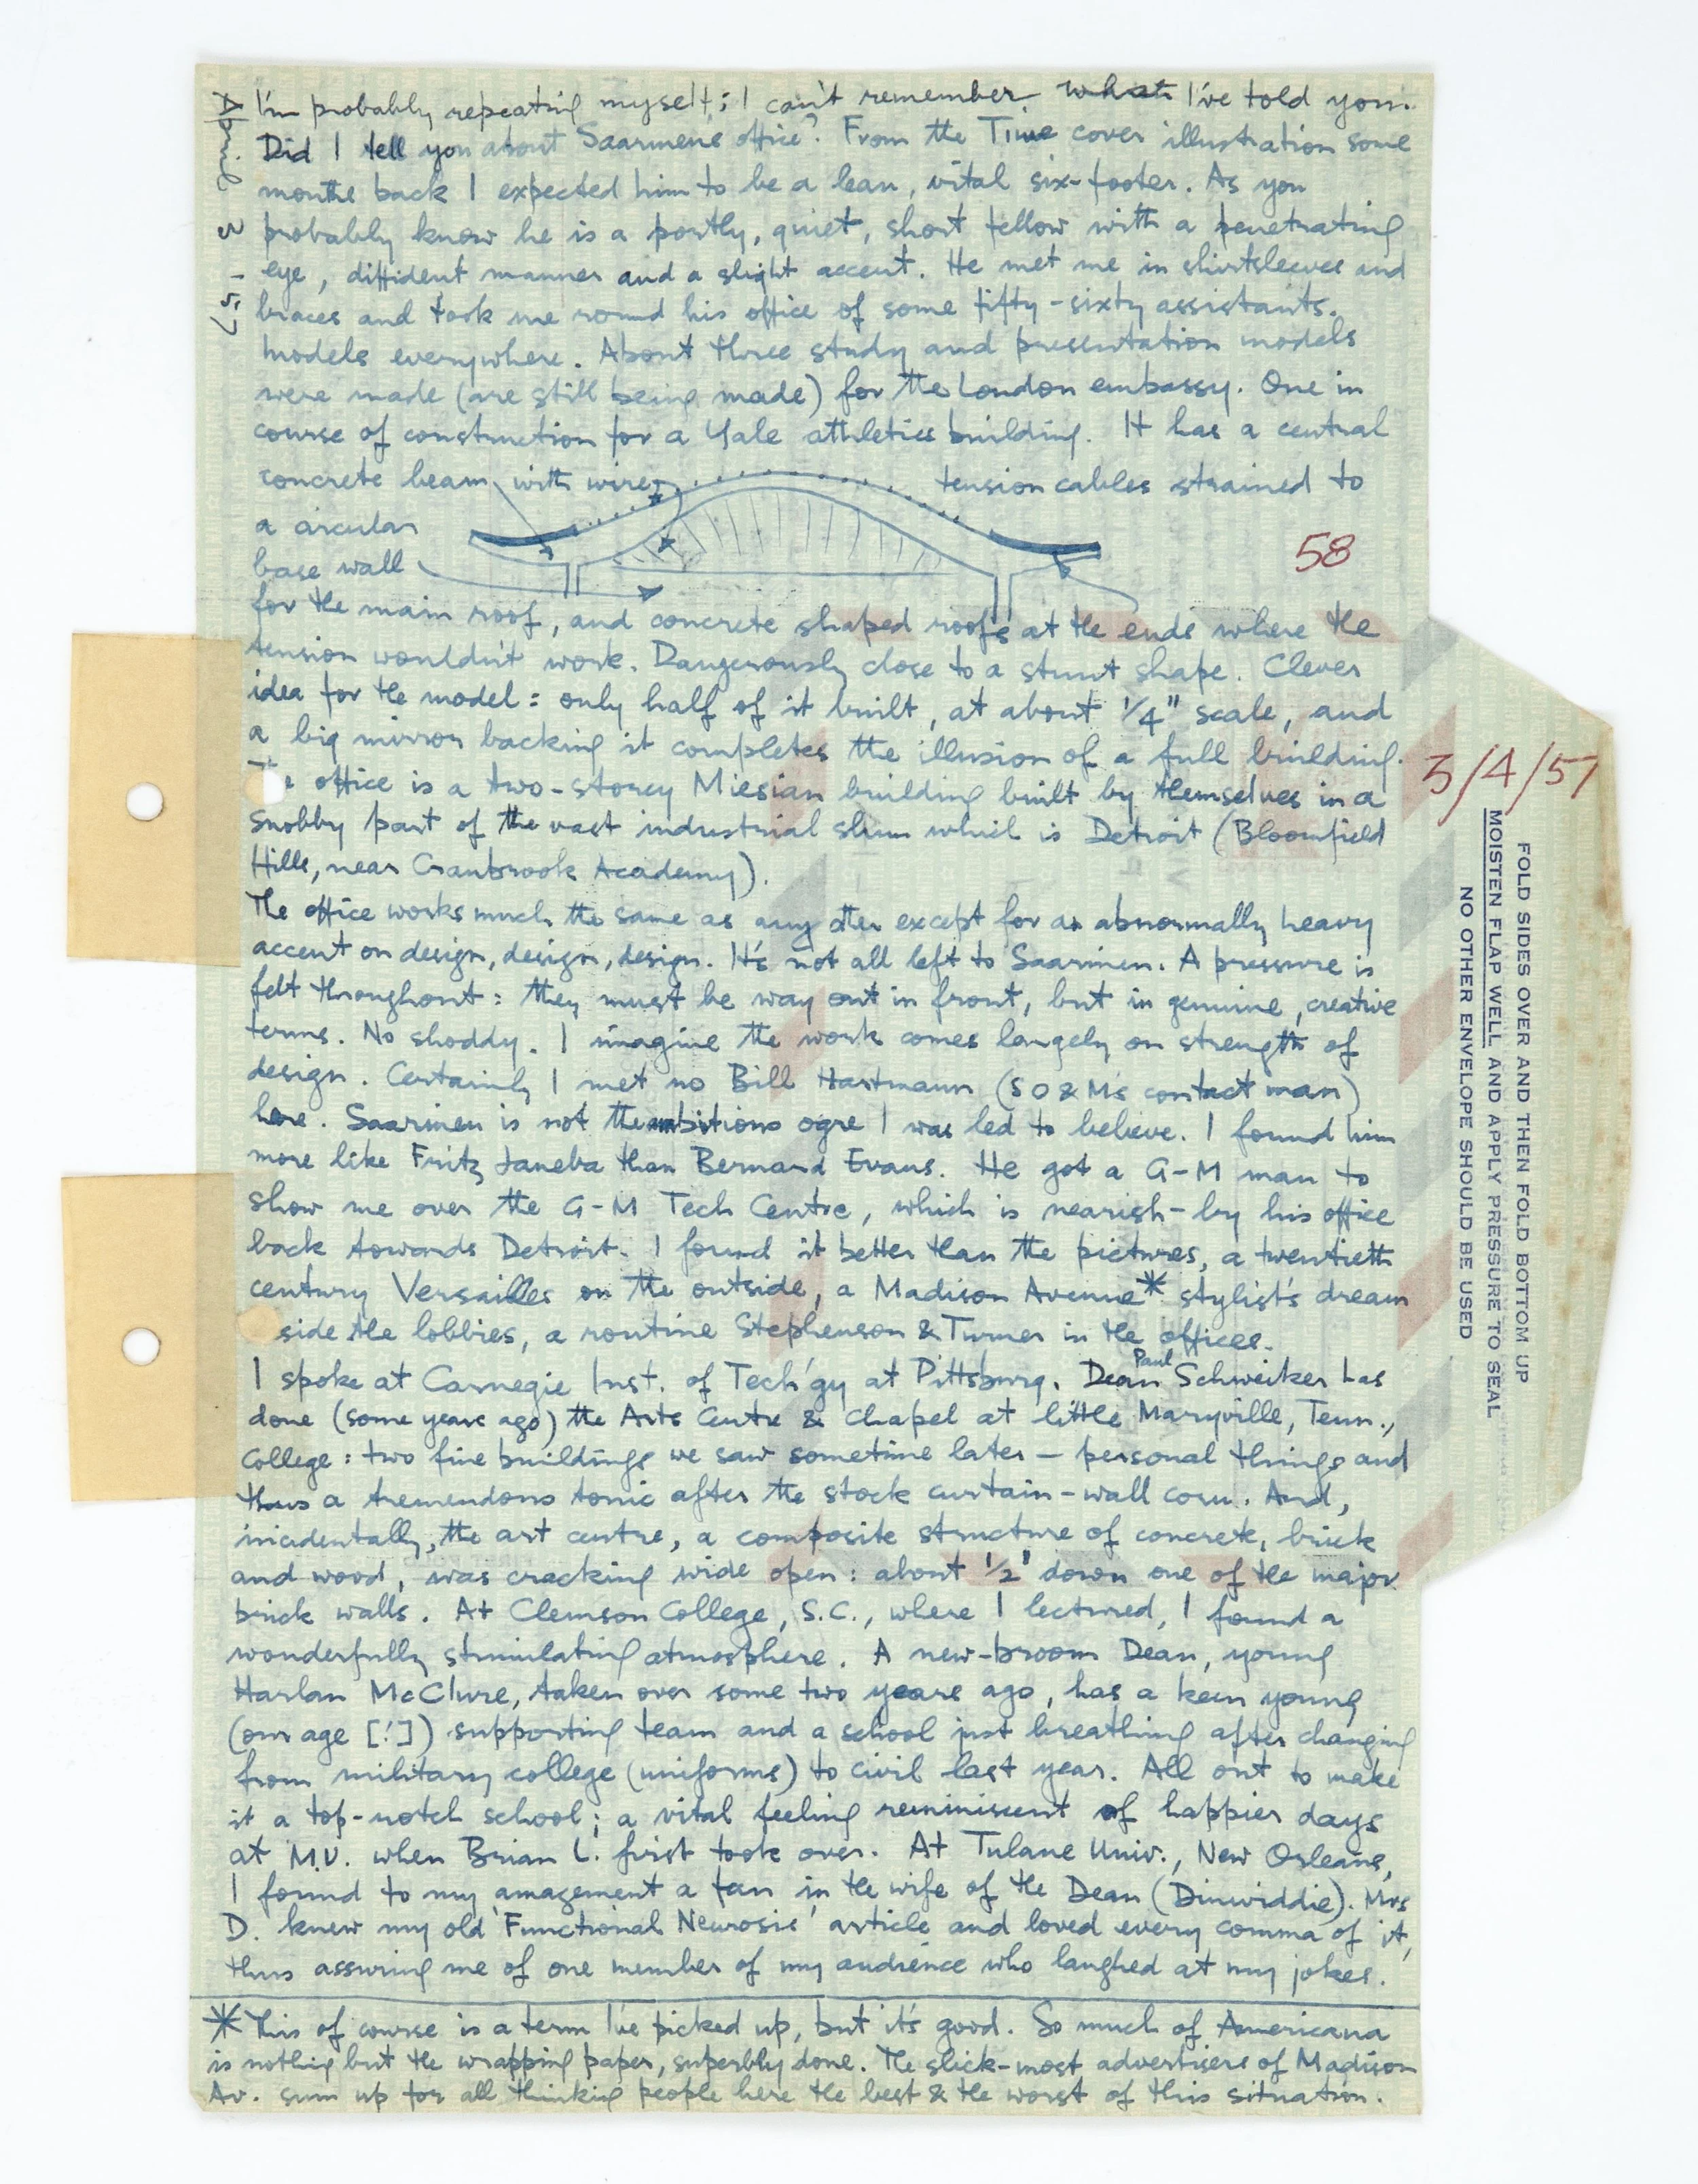 April 3 - 57
I'm probably repeating myself; I can't remember what I've told you.
Did I tell you about Saarinens office? From the Time cover illustration some
months back I expected him to be a lean, vital six-footer. As you
probably know he is a portly, quiet, short fellow with a penetrating
eye, diffident manner and a slight accent. He met me in shirtsleeves and
braces and took me round his office of some fifty-sixty assistants.
Models everywhere. About three study and presentation models
were made (are still being made) for the London embassy. One in
course of construction for a Yale athletics building. It has a central
concrete beam with wire tension cables strained to
a circular
base wall
58
for the main roof, and concrete shaped roofs at the ends where the
tension wouldn't work. Dangerously close to a stunt shape. Clever
idea for the model: only half of it built, at about 1/4" scale, and
a big mirror backing it completes the illusion of a full building.
office is a two-storey Miesian building built by themselves in a
snobby part of the vast industrial slum which is Detroit (Bloomfield
Hills, near Cranbrook Academy).
3/4/57
The office works much the same as any other except for an abnormally heavy
accent on design, design, design. It's not all left to Saarinen. A pressure is
felt throughout: they must be way out in front, but in genuine, creative
terms. No shoddy. I imagine the work comes largely on strength of
design. Certainly I met no Bill Hartmann (SO&M's contact man)
here. Saarinen is not the ambitious ogre I was led to believe. I found him
more like Fritz Janeba than Bernard Evans. He got a G-M man to
show me over the G-M Tech Centre, which is nearish-by his office
back towards Detroit. I found it better than the pictures, a twentieth
century Versailles on the outside, a Madison Avenue* stylist's dream
side the lobbies, a routine Stephenson & Turner in the offices.
I spoke at Carnegie Inst. of Tech'gy at Pittsburg. Dean Paul Schweiker has
done (some years ago) the Arts Centre & Chapel at little Maryville, Tenn.,
College: two fine buildings we saw sometime later – personal things and
thus a tremendous tonic after the stock curtain-wall corn. And,
incidentally, the art centre, a composite structure of concrete, brick
and wood, was cracking wide open: about 1/2' down one of the major
brick walls. At Clemson College, S.C., where I lectured, I found a
wonderfully stimulating atmosphere. A new-broom Dean, young
Harlan McClure, taken over some two years ago, has a keen young
(our age [!]) supporting team and a school just breathing after changing
from military college (uniforms) to civil last year. All out to make
it a top-notch school; a vital feeling reminiscent of happier days
at M.U. when Brian L. first took over. At Tulane Univ., New Orleans,
I found to my amazement a fan in the wife of the Dean (Dinwiddie). Mrs
D. knew my old 'Functional Neurosis' article and loved every comma of it,
thus assuring me of one member of my audience who laughed at my jokes.
* This of course is a term I've picked up, but it's good. So much of Americana
is nothing but the wrapping paper, superbly done. The slick-most advertisers of Madison
Av. sum up for all thinking people here the best & the worst of this situation.
FOLD SIDES OVER AND THEN FOLD BOTTOM UP
MOISTEN FLAP WELL AND APPLY PRESSURE TO SEAL
NO OTHER ENVELOPE SHOULD BE USED